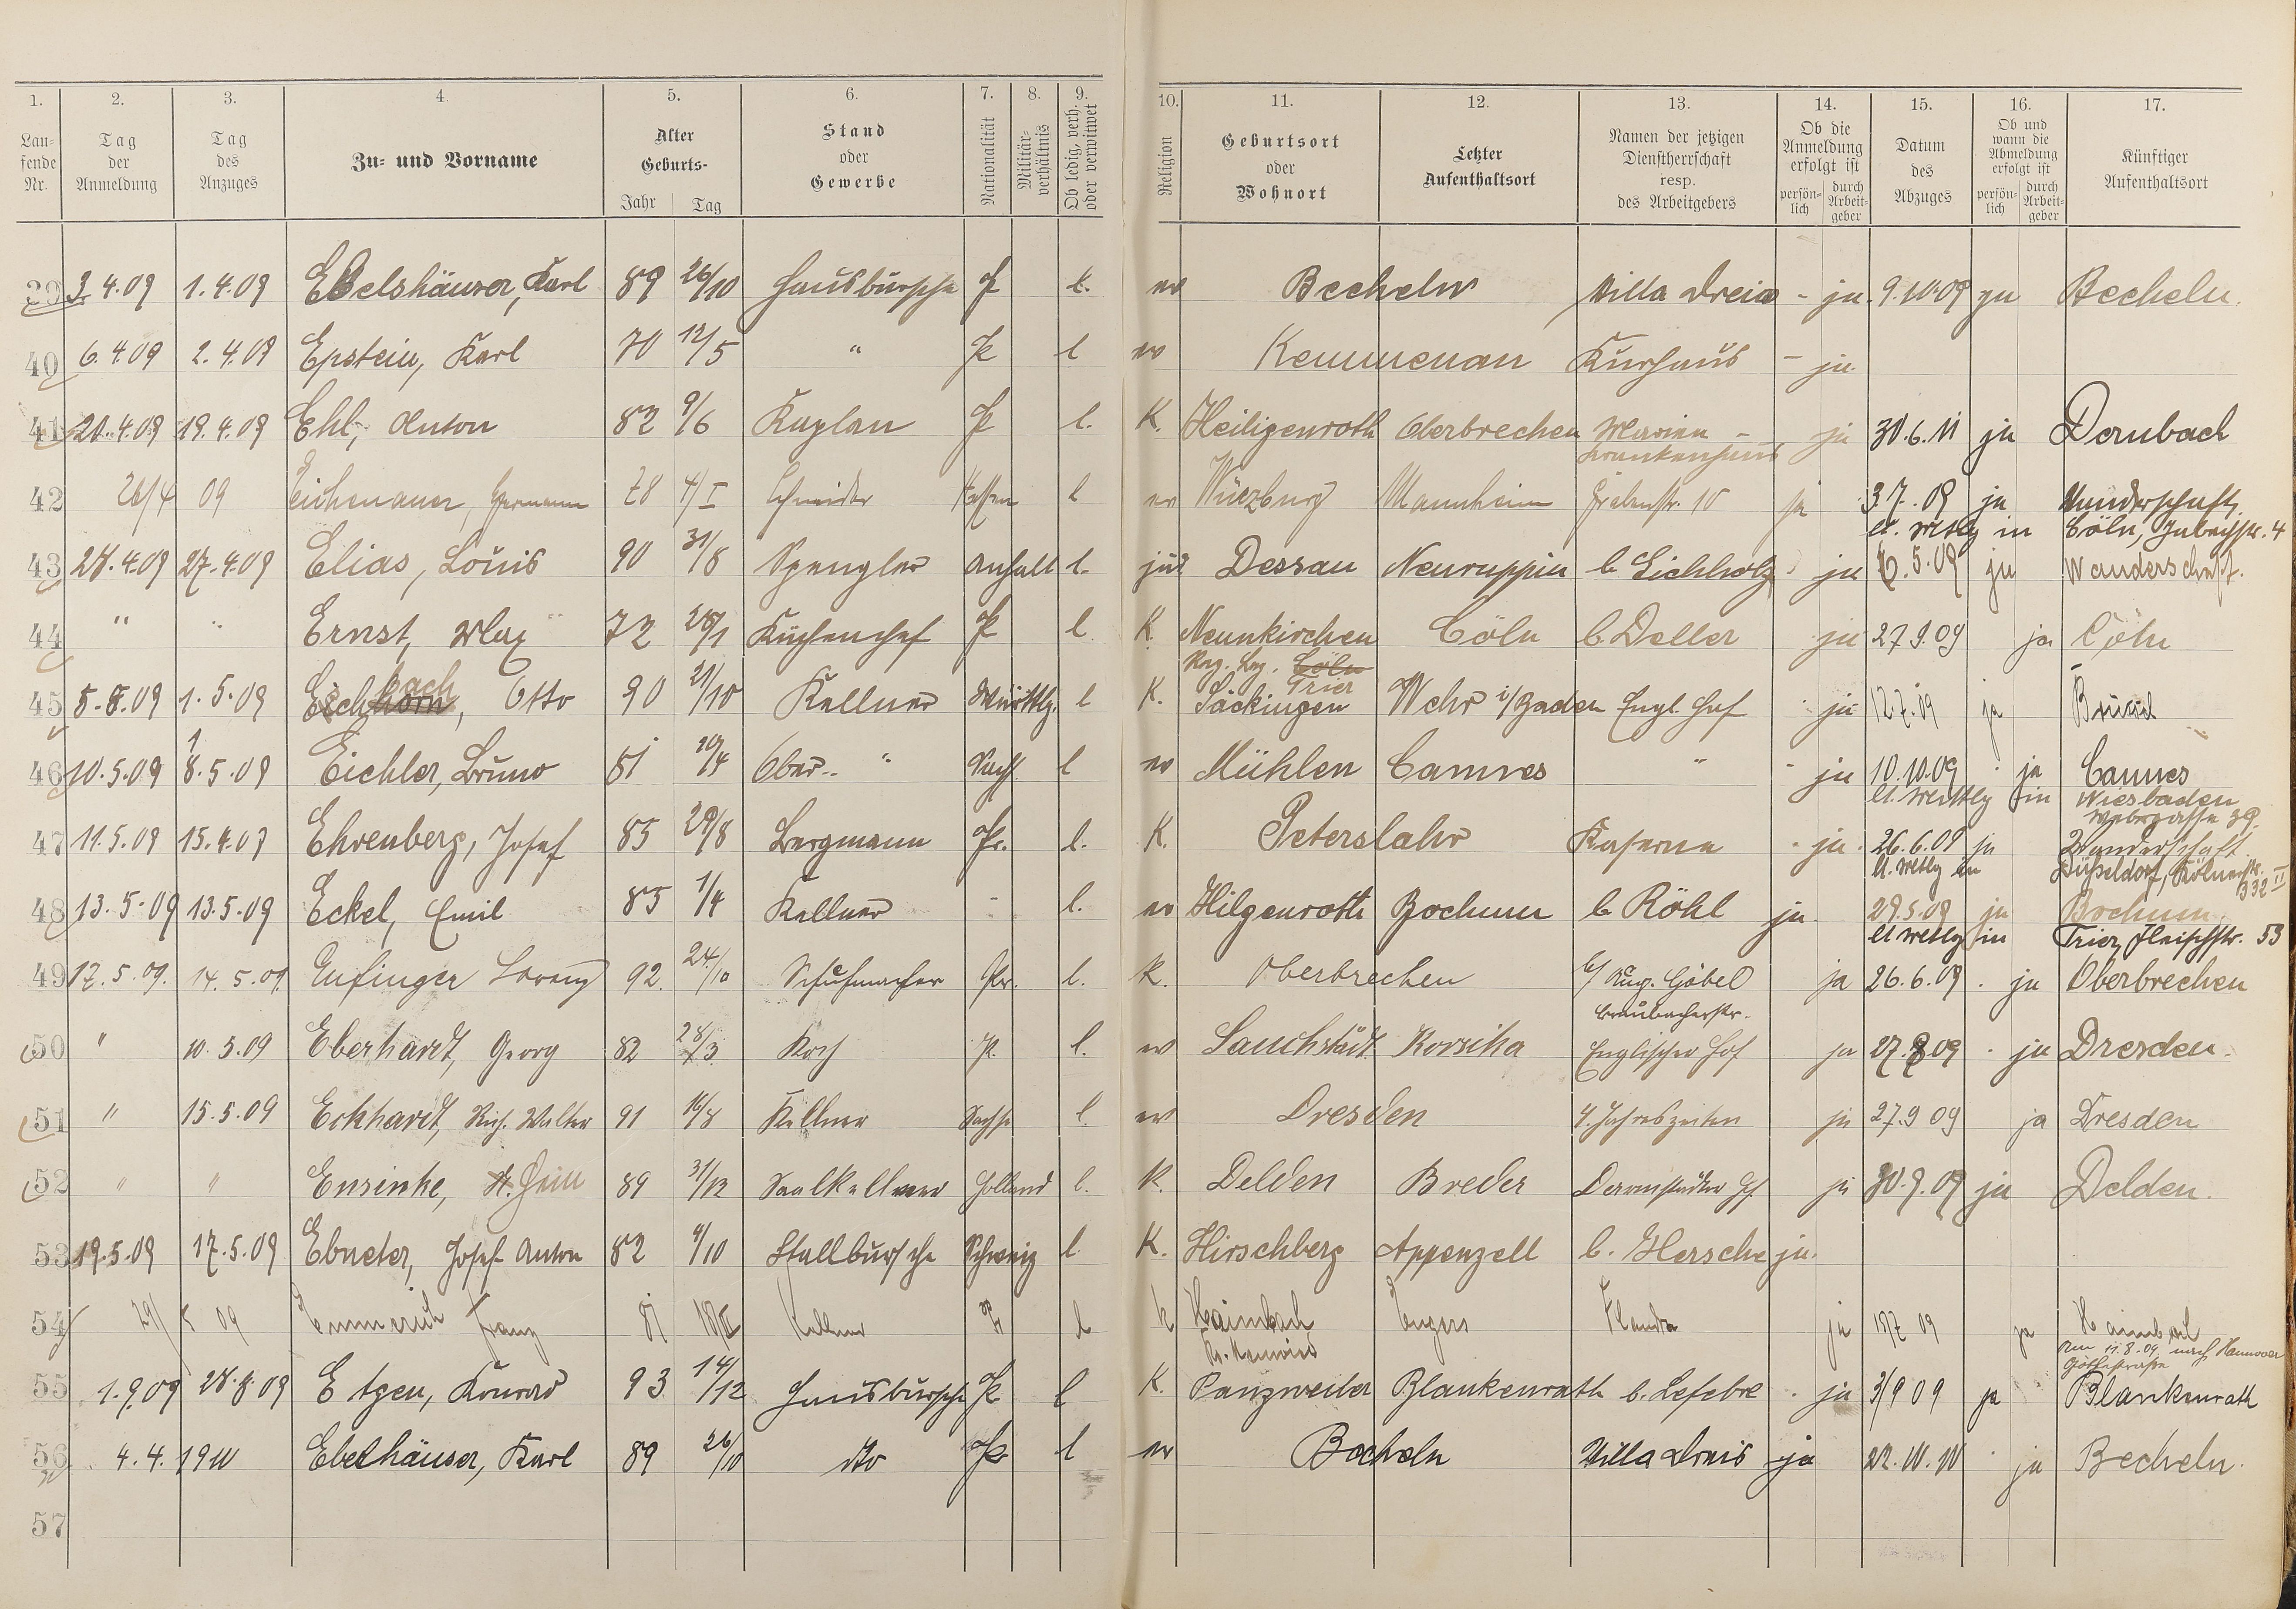 1. 2. 3. 4. 5. 6. 7. 8. 9. 10. 11. 12. 13. 14. 15. 16. 17.
Lau-
fende
Nr.
Tag
der
Anmeldung
Tag
des
Anzuges
Zu- und Vorname
Alter
Geburts-
Jahr Tag
Stand
oder
Gewerbe
Nationalität
Militär-
verhältnis
Ob ledig, verh.
oder verwitwet
Religion
Geburtsort
oder
Wohnort
Letzter
Aufenthaltsort
Namen der jetzigen
Dienstherrschaft
resp.
des Arbeitgebers
Ob die
Anmeldung
erfolgt ist
persön-
lich
durch
Arbeit-
geber
Datum
des
Abzuges
Ob und
wann die
Abmeldung
erfolgt ist
persön-
lich
durch
Arbeit-
geber
Künftiger
Aufenthaltsort
39 3.4.09 1.4.09 Ebelshäuser, Karl 89 26/10 Hausbursche P l. ev Becheln Villa - ja 9.10.09 ja Becheln.
40 6.4.09 2.4.09 Epstein, Karl 70 12/5 " P l ev Kemmenau Kurhaus - ja
41 21.4.09 19.4.09 Ehl, Anton 82 9/6 Kaplan P l. K. Heiligenroth Oberbrechen Marien - ja 30.6.11 ja Dernbach
krankenhaus
42 26/4 09 Eichenauer, Hermann 78 4/I Schneider Hessen l ev Würzburg Mannheim Grabenstr. 10 ja 3.7.09 ja Wanderschaft
lt. Mtlg in Cöln, 4
43 28.4.09 27.4.09 Elias, Louis 90 31/8 Spengler Anhalt l. jüd Dessau Neuruppin b Eichholz ja 6.5.09 ja Wanderschaft.
44 " " Ernst, Max 72 28/1 Küchenchef P l K. Neunkirchen Cöln b. Deller ja 27.9.09 ja Cöln
Reg. Bez. Cöln
Trier
45 5.5.09 1.5.09 Eschbach, Otto 90 21/10 Kellner Württbg. l K. Säckingen Wehr i/Baden Engl. Hof ja 12.7.09 ja
46 10.5.09 8.5.09 Eichler, Bruno 81 10/4 Ober- " Sachs l ev Mühlen Cannes " - ja 10.10.09 ja Cannes
lt. Mittlg in Wiesbaden
Webergasse 39.
47 11.5.09 15.4.09 Ehrenberg, Josef 85 29/8 Bergmann Pr. l. K. Peterslahr Kaserne - ja 26.6.09 ja Wanderschaft
lt. Mtlg in Düsseldorf, Kölnerstr. 332 II
48 13.5.09 13.5.09 Eckel, Emil 85 1/4 Kellner - l. ev Hilgenroth Bochum b Röhl ja 29.5.09 ja Bochum
lt Mtlg in Trier, Fleischstr. 53
49 17.5.09. 14.5.09. Enfinger Lorenz 92. 24./10 Schuhmacher Pr. l. K. Oberbrechen b/ Aug. Göbel ja 26.6.09. ja Oberbrechen
Braubacherstr.
50 " 10.5.09 Eberhardt, Georg 82 28/3 Koch P. l. ev Lauchstädt Korsika Englischer Hof ja 27.9 09 ja Dresden.
51 " 15.5.09 Eckhardt, Rich. Walter 91 Kellner Sachse l. ev Dresden 4. Jahreszeiten ja 27.9 09 ja Dresden
52 " " Ensinke, H. 89 31/12 Saalkellner Holland l. K. Delden Breder Darmstädter Hf. ja 30.9.09 ja Delden.
53 19.5.09 17.5.09 Ebneter, Josef Anton 82 4/10 Stallbursche Schweiz l K. Hirschberg Appenzell b. Hersche ja.
54 29/5 09 Emmerich Franz Kellner P l k Haimbach Engers Flandre ja 09 ja Haimbach
Kr. Neuwied
Am 11.8.09 nach Hannover
Göthestrasse
55 1.9.09 28.8.09 Etgen, Konrad 93 14/12 Hausbursche P l K. Panzweiler Blankenrath b. Lefebre - ja 3/9 09 ja Blankenrath
56 4.4.1910 Ebelhäuser, Karl 89 26/10 dto Pr l ev Becheln Villa ja 22.10.10 ja Becheln.
57